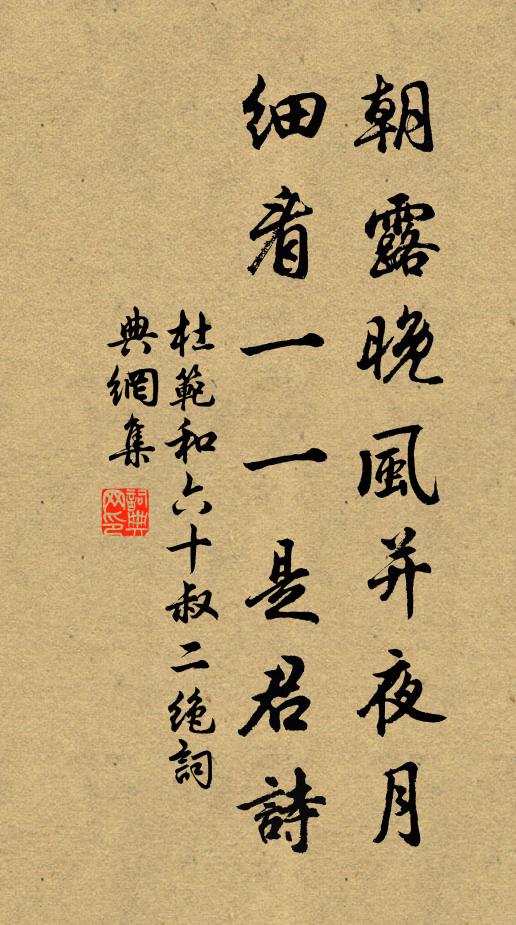 朝露晚風并夜月
細看一一是君詩
杜範和六十叔二絶詞
典網集
詞典网印